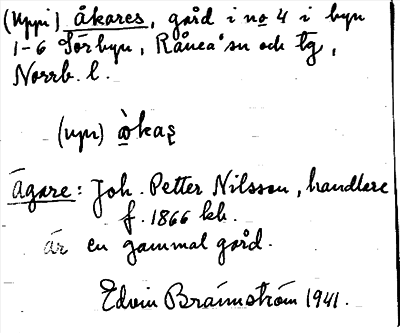 (Uppi) åkares, gård i no 4 i byn
1-6 Sörbyn, Råneå sn och tg,
Norrb. l.
(upi)
Ägare: Joh. Petter Nilsson, handlare
f. 1866 kb.
är en gammal gård.
Edvin Brännström 1941.